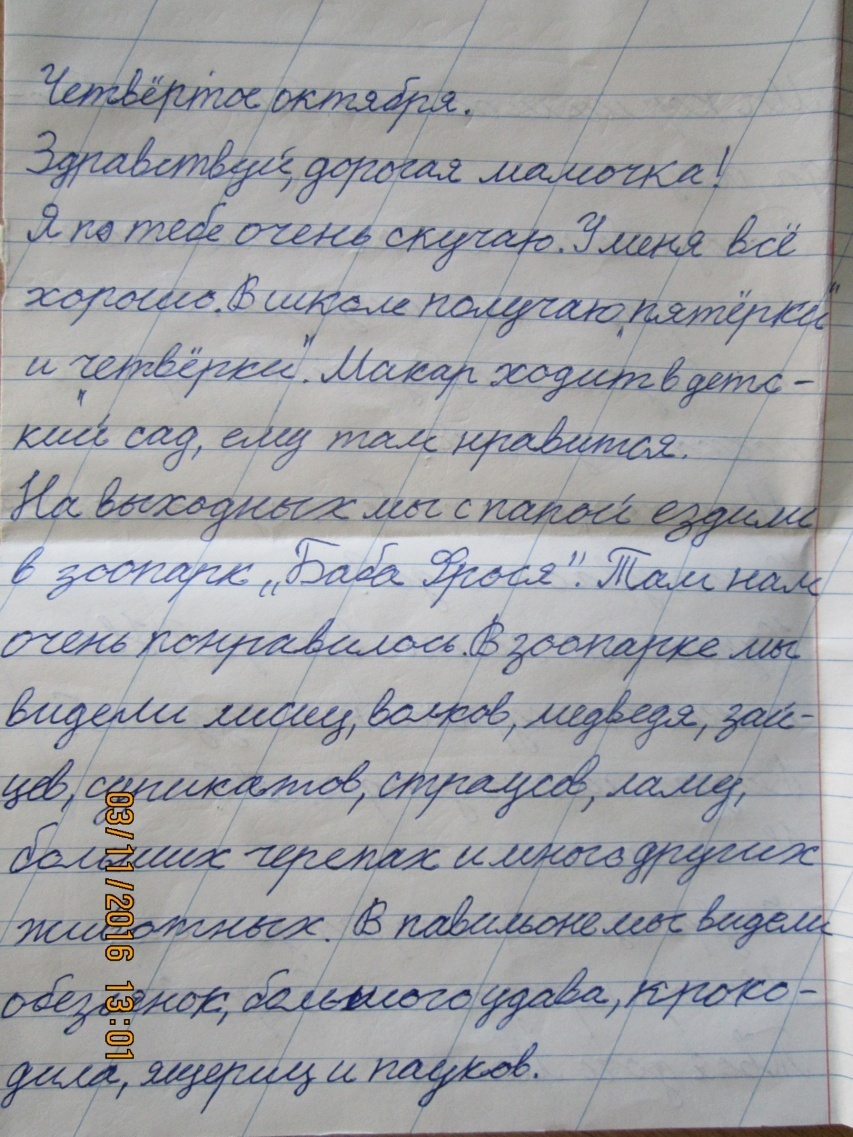 Четвёртое октября.
Здравствуй, дорогая мамочка!
Я по тебе очень скучаю. У меня всё
хорошо. В школе получаю „пятёрки"
и „четвёрки". Макар ходит в детс-
кий сад, ему там нравится.
На выходных мы с папой ездили
в зоопарк „Баба Фрося". Там нам
очень понравилось. В зоопарке мы
видели лисиц, волков, медведя, зай-
цев, сурикатов, страусов, ламу,
больших черепах и много других
животных. В павильоне мы видели
обезьянок, большого удава, кроко-
дила, ящериц и пауков.
03/11/2016 13:01